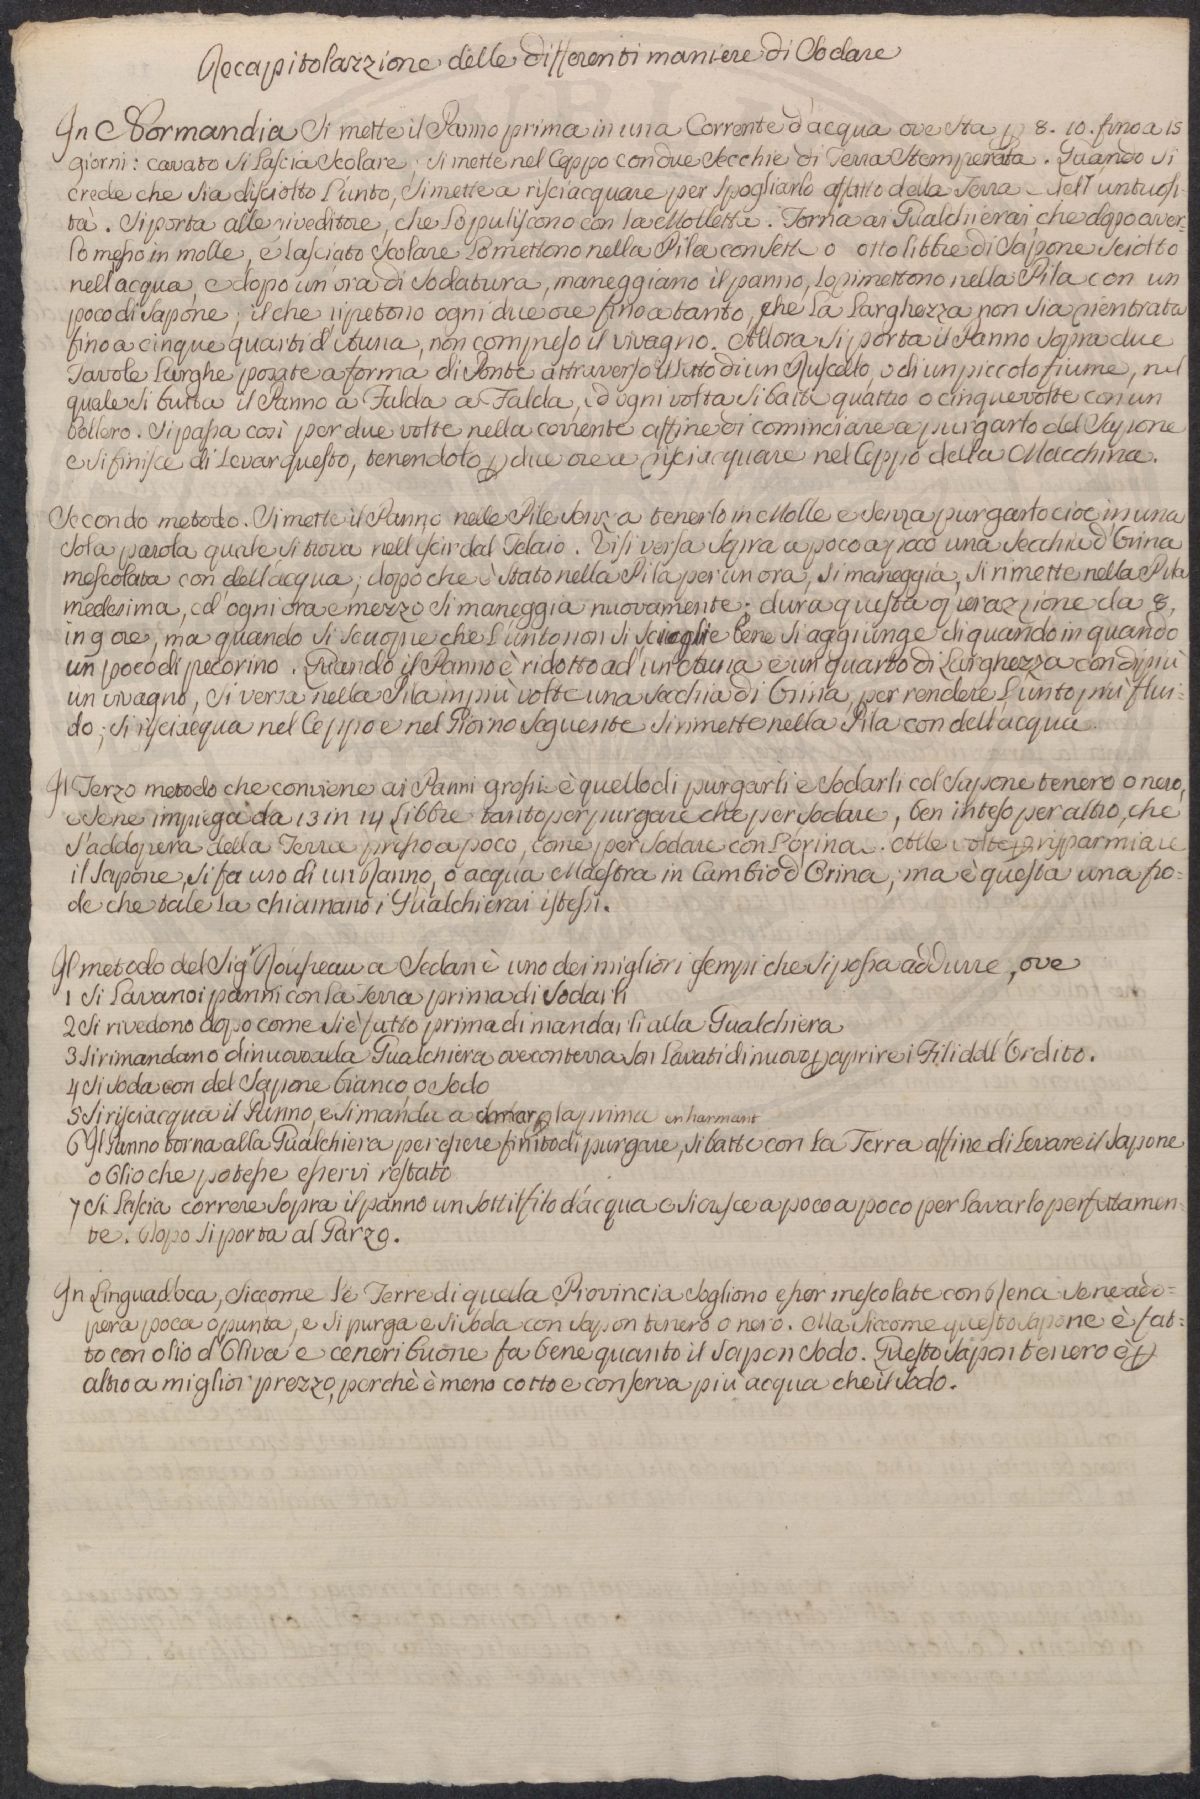 Recapitolazzione delle differenti maniere di Sodare
In Normandia Si mette il Panno prima in una Corrente d'acqua ove sta p 8. 10. fino a 15
giorni: cavato si Lascia Scolare, si mette nel Ceppo con due Secchie di Terra Stemperata. Quando si
crede che sia disciolto l'unto, Si mette a risciacquare per spogliarlo affatto della Terra e dell'untuosi-
tà. Si porta alle riveditore, che lo puliscono con la Molletta. Torna ai Gualchierai, che dopo aver-
lo messo in molle, e lasciato Scolare Lo mettono nella Pila con sette o otto libbre di Sapone Sciolto
nell'acqua, e dopo un'ora di Sodatura, maneggiano il panno, Lo rimettono nella Pila con un
poco di Sapone; il che ripetono ogni due ore fino a tanto, che La Larghezza non sia rientrata
fino a cinque quarti d'Auna, non compreso il vivagno. Allora si porta il Panno sopra due
Tavole Larghe posate a forma di Ponte attraverso il Letto di un Ruscello, o di un piccolo fiume, nel
quale si butta il Panno a Falda a Falda, ed ogni volta si batte quattro o cinque volte con un
Bollero. Si passa così per due volte nella corrente affine di cominciare a purgarlo del Sapone
e si finisce di Levar questo, tenendolo p due ore a risciacquare nel Ceppo della Macchina.
Secondo metodo. Si mette il Panno nelle Pile senz a tenerlo in Molle e senza purgarlo cioè in una
sola parola quale si trova nell'uscir dal Telaio. Vi si versa sopra a poco a poco una Secchia d'Orina
mescolata con dell'acqua; dopo che è stato nella Pila per un'ora, si maneggia, si rimette nella Pila
medesima, ed ogni ora e mezzo si maneggia nuovamente; dura questa operazzione da 8.
in 9 ore, ma quando si scuopre che l'unto non si scioglie bene si aggiunge di quando in quando
un poco di pecorino. Quando il Panno è ridotto ad un'Auna e un quarto di Larghezza con di più
un vivagno, si versa nella Pila in più volte una Secchia di Orina, per rendere l'unto più flui-
do; si risciacqua nel Ceppo e nel Giorno Seguente si rimette nella Pila con dell'acqua
Il Terzo metodo che conviene ai Panni grossi è quello di purgarli e Sodarli col Sapone tenero o nero,
e se ne impiega da 13 in 14 Libbre tanto per purgare che per sodare, ben inteso per altro, che
S'addopera della Terra presso a poco, come per Sodare con l'orina. Alle volte p risparmiare
il Sapone, Si fa uso di un Ranno, o acqua Maestra in Cambio d'Orina; ma è questa una fro-
de che tale La chiamano i Gualchierai istessi.
Il metodo del Sigr Rousseau a Sedan è uno dei migliori esempi che si possa addurre, ove
1 Si Lavano i panni con la Terra prima di Sodarli
2 Si rivedono dopo come si è fatto prima di mandarli alla Gualchiera
3 Si rimandano di nuovo alla Gualchiera ove con terra son Lavati di nuovo p aprire i Fili dell'Ordito.
4 Si soda con del Sapone bianco, o Sodo
5 Si risciacqua il Panno, e si manda a p la prima en harmant
6 Il Panno torna alla Gualchiera per essere finito di purgare, si batte con La Terra affine di Levare il Sapone
o Olio che potesse esservi restato
7 Si Lascia correre sopra il panno un sottil filo d'acqua e si cresce a poco a poco per Lavarlo perfettamen-
te. Dopo si porta al Garzo.
In Linguadoca, siccome le Terre di quella Provincia sogliono esser mescolate con Rena se ne ado-
pera poca o punta, e si purga e si Soda con Sapon tenero o nero. Ma siccome questo Sapone è fat-
to con olio d'Oliva e ceneri buone fa bene quanto il Sapon sodo. Questo Sapon tenero è p
altro a miglior prezzo, perchè è meno cotto e conserva più acqua che il Sodo.